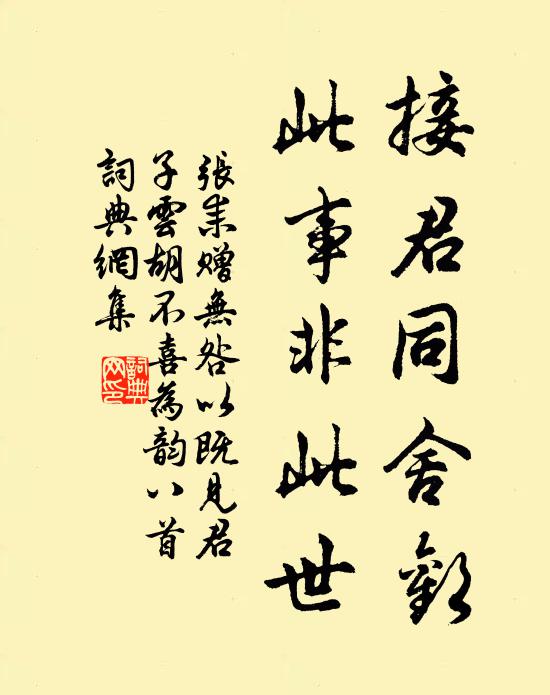 接君同舍歡
此事非此世
張耒贈無咎以既見君
子雲胡不喜為韵八首
詞典網集
詞典
网印